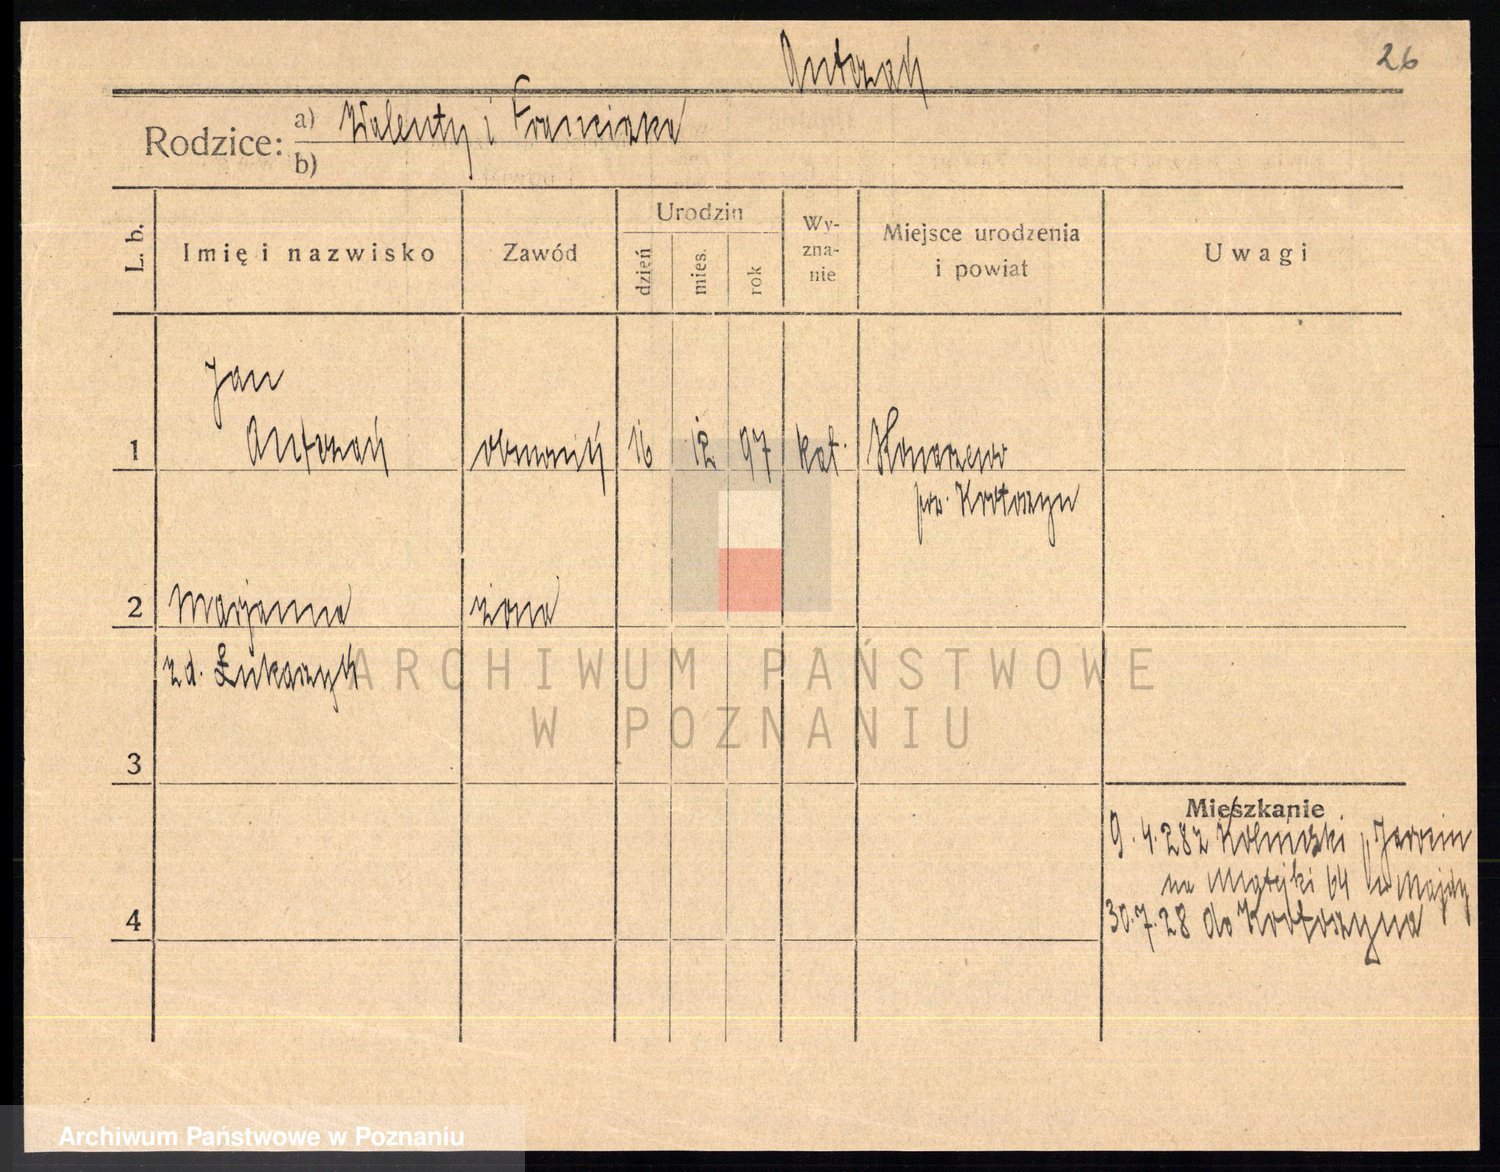 Antczak
26
Rodzice: a) Walenty i Franciszka
b)
L. b. Imię i nazwisko Zawód Urodzin dzień mies. rok Wy-zna-nie Miejsce urodzenia i powiat Uwagi
Jan
1 Antczak 16 12 97 kat. Konarzewo
pow. Krotoszyn
2 Marjanna żona
zd. Łukaszyk
3
Mieszkanie
9.4.28 z
na Matejki 64
30.7.28 do Krotoszyna
4
ARCHIWUM PAŃSTWOWE
W POZNANIU
Archiwum Państwowe w Poznaniu